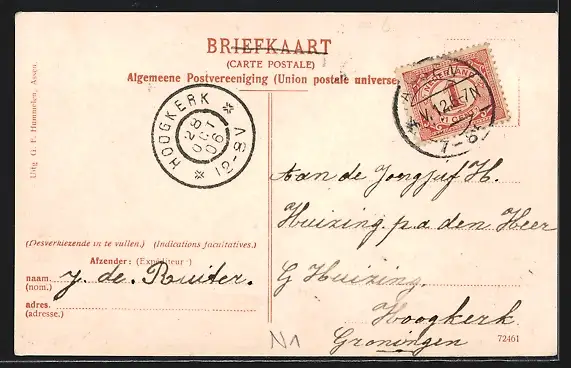 BRIEFKAART
(CARTE POSTALE)
Algemeene Postvereeniging (Union postale universe
Uitg. G. F. Hummelen, Assen.
HOOGKERK
28
OCT
06
12-8V
NEDERLAND
1
CENT
7-8
Aan de Jongjuf H.
Huizing p.a den Heer
G Huizing.
Hoogkerk
Groningen
(Desverkiezende in te vullen.) (Indications facultatives.)
Afzender: (Expéditeur)
naam. J. de Ruiter.
(nom.)
adres.
(adresse.)
N1
72461